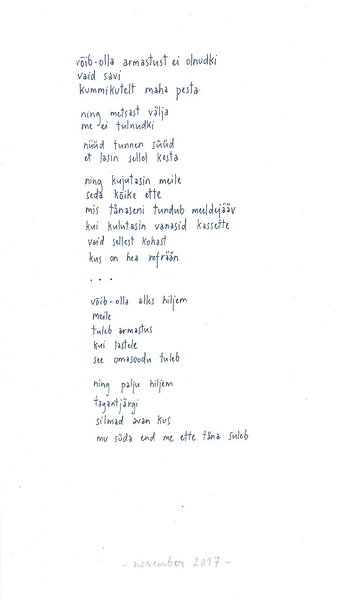 võib-olla armastust ei olnudki
vaid savi
kummikutelt maha pesta
ning metsast välja
me ei tulnudki
nüüd tunnen süüd
et lasin sellel kesta
ning kujutasin meile
seda kõike ette
mis tänaseni tundub meeldejääv
kui kulutasin vanasid kassette
vaid sellest kohast
kus on hea refrään
...
võib-olla alles hiljem
meile
tuleb armastus
kui lastele
see omasoodu tuleb
ning palju hiljem
tagantjärgi
silmad avan kus
mu süda end me ette täna suleb
- november 2017 -